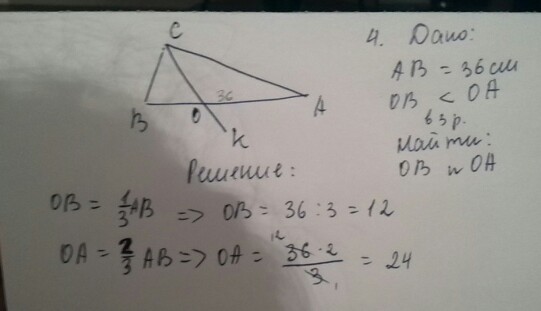 C
4. Дано:
AB = 36 см
OB < OA
в 3 р.
Найти:
OB и OA
36
B
O
A
K
Решение:
OB = 1/3 AB => OB = 36 : 3 = 12
OA = 2/3 AB => OA = 12 36 · 2 / 3 1 = 24